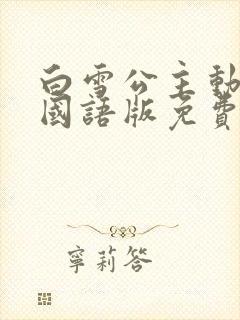 白雪公主動
國語版免費
寧莉答